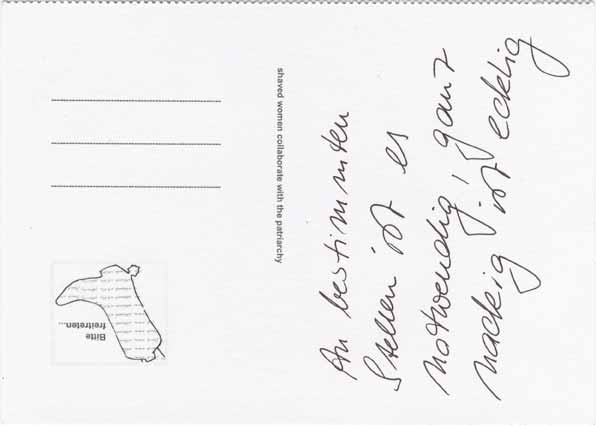 An bestimmten
Stellen ist es
notwendig! ganz
nackig ist ecklig
shaved women collaborate with the patriarchy
Bitte
freitreten...